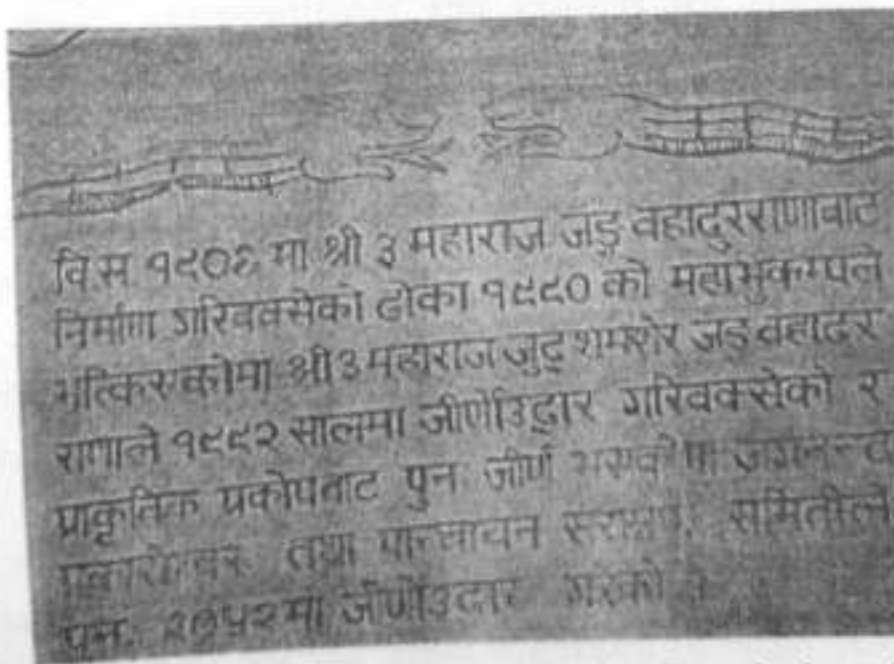 वि.स १९०६ मा श्री ३ महाराज जङ्ग वहादुरराणावाट
निर्माण गरिवक्सेको ढोका १९९० को महाभुकम्पले
भत्किसकोमा श्री ३ महाराज जुद्ध शमशेर जङ्ग वहादर
राणाले १९९२ सालमा जीर्णोउद्वार गरिवक्सेको र
प्राकृतिक प्रकोपवाट पुन जीर्ण
तथा समितीले
पुन. २०५२मा जीर्णोउदार गरको